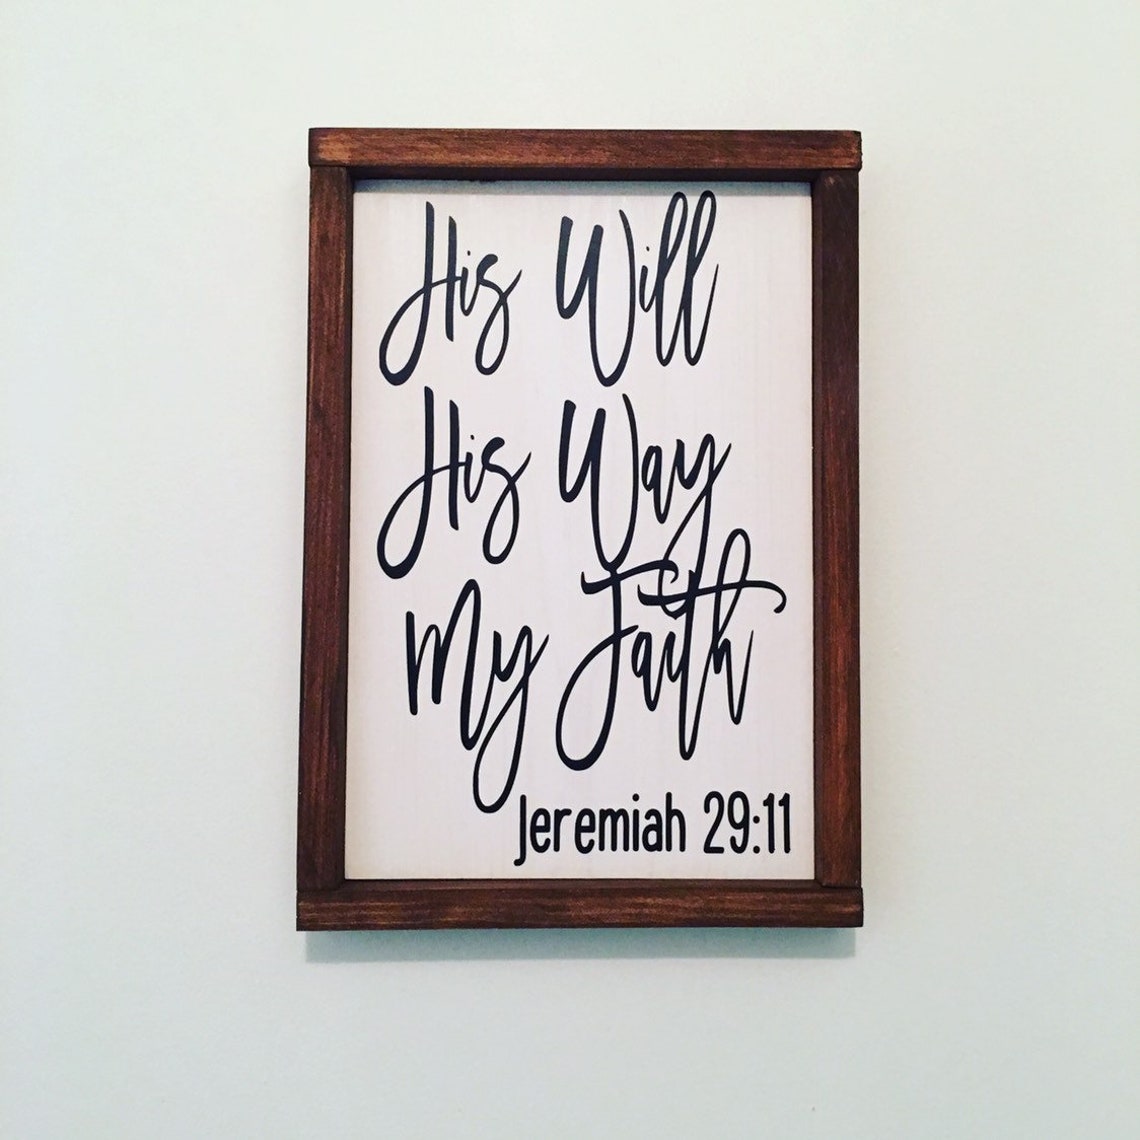 His Will
His Way
My Faith
Jeremiah 29:11